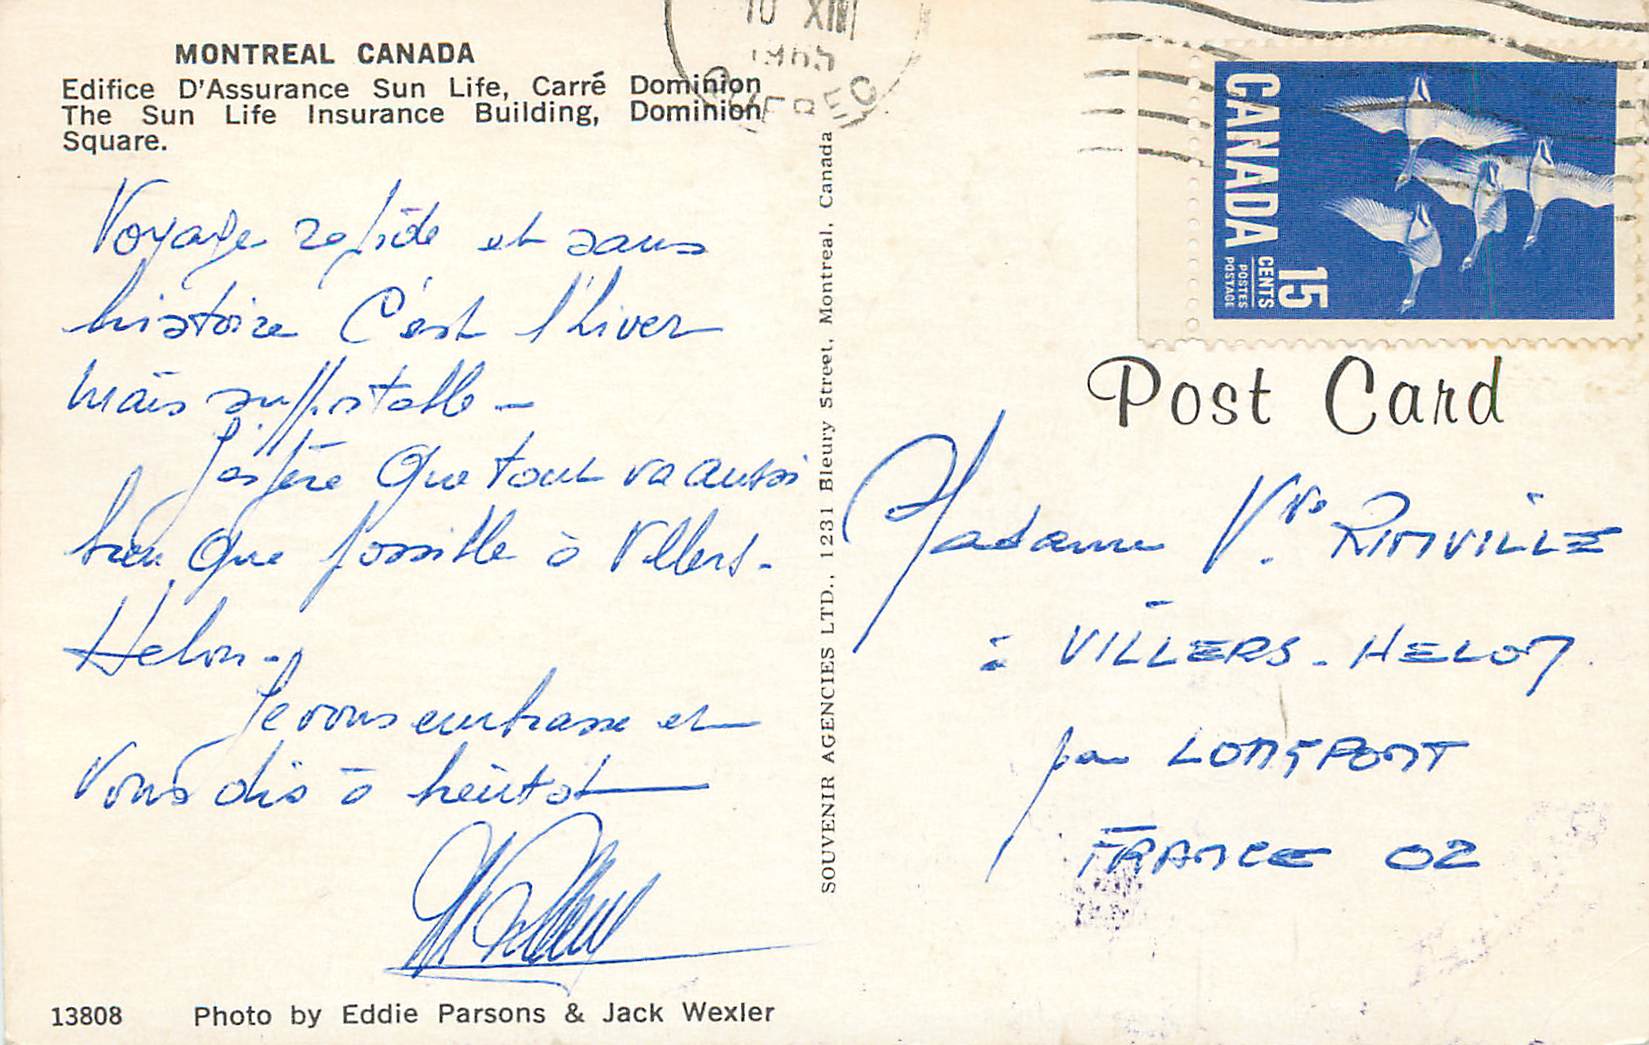 MONTREAL CANADA
Edifice D'Assurance Sun Life, Carré Dominion
The Sun Life Insurance Building, Dominion
Square.
10 XII
1965
QUEBEC
CANADA
15
CENTS
POSTES
POSTAGE
Voyage rapide et sans
histoire C'est l'hiver
mais supportable -
J'espère que tout va aussi
bien que possible à Villers-
Helon -
Je vous embrasse et
Vous dis à bientôt
SOUVENIR AGENCIES LTD., 1231 Bleury Street, Montreal, Canada
Post Card
Madame Vve RIMVILLE
à VILLERS-HELON
par LONGPONT
FRANCE 02
13808 Photo by Eddie Parsons & Jack Wexler